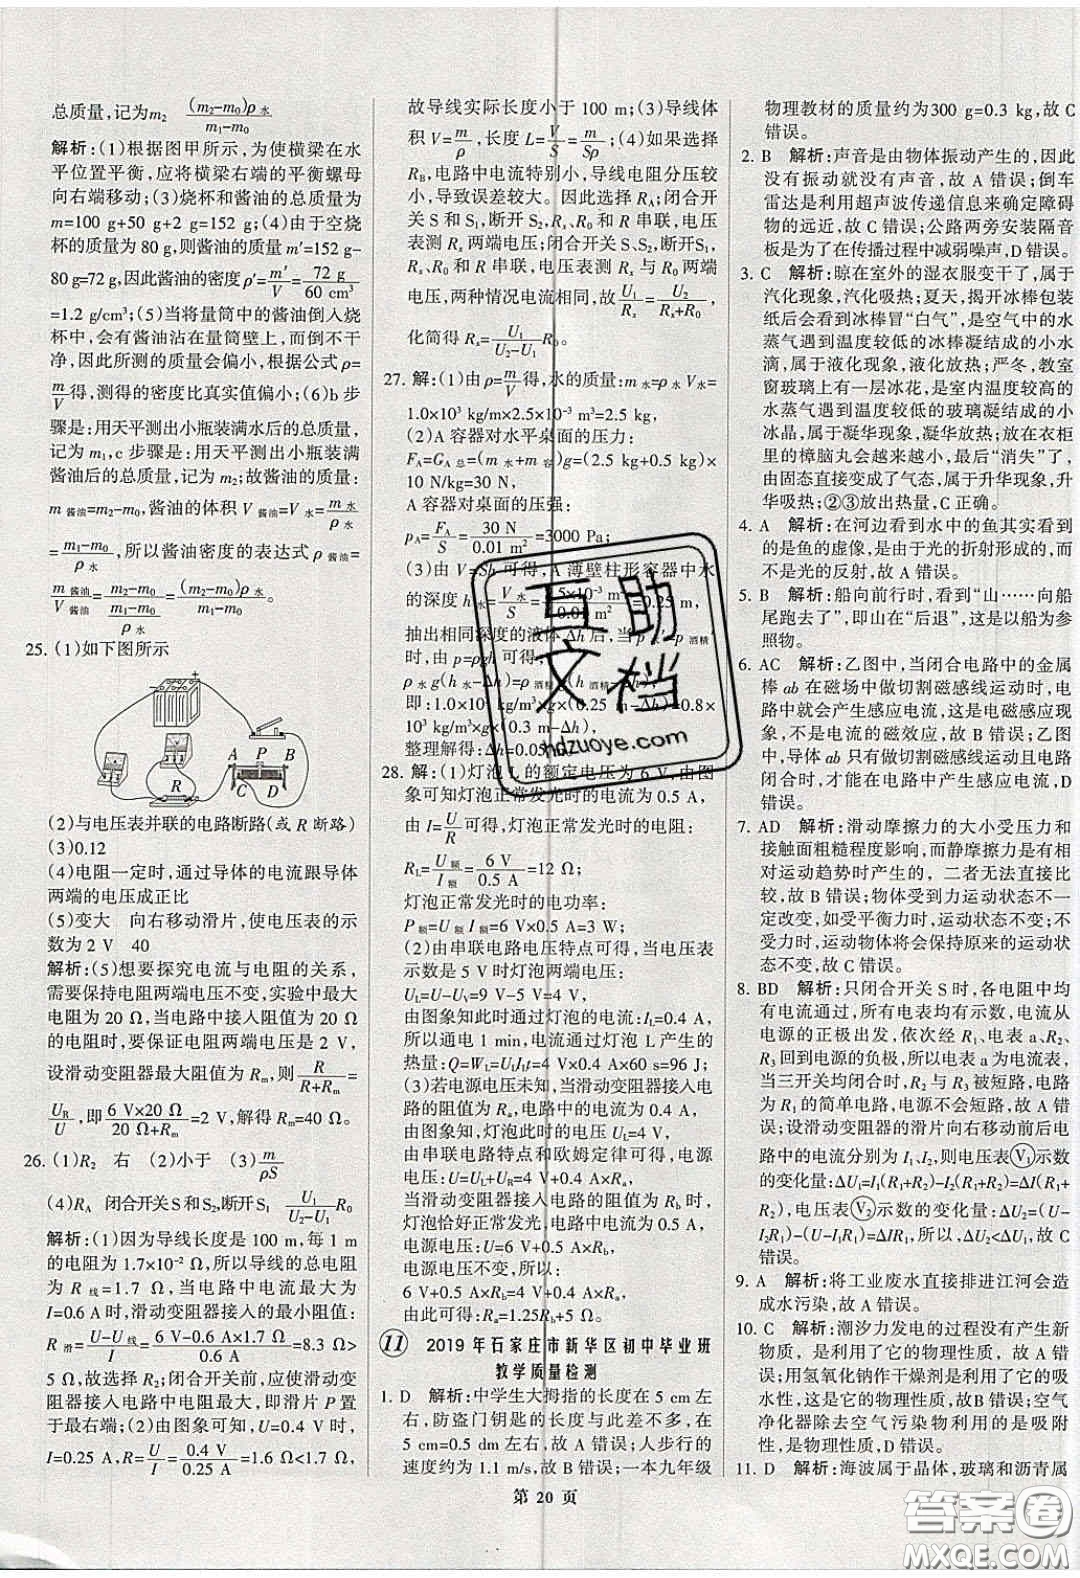 总质量,记为m₂ (m₂-m₀)ρ水/(m₁-m₀)
解析:(1)根据图甲所示,为使横梁在水
平位置平衡,应将横梁右端的平衡螺母
向右端移动;(3)烧杯和酱油的总质量为
m=100 g+50 g+2 g=152 g;(4)由于空烧
杯的质量为 80 g,则酱油的质量 m′=152 g-
80 g=72 g,因此酱油的密度 ρ′=m′/V=72 g/60 cm³
=1.2 g/cm³;(5)当将量筒中的酱油倒入烧
杯中,会有酱油沾在量筒壁上,而倒不干
净,因此所测的质量会偏小,根据公式 ρ=
m/V,测得的密度比真实值偏小;(6)b 步
骤是:用天平测出小瓶装满水后的总质量,
记为 m₁,c 步骤是:用天平测出小瓶装满
酱油后的总质量,记为 m₂;故酱油的质量
m酱油=m₂-m₀,酱油的体积 V酱油=V水=m水/ρ水
=(m₁-m₀)/ρ水,所以酱油密度的表达式 ρ酱油=
m酱油/V酱油=(m₂-m₀)/((m₁-m₀)/ρ水)=(m₂-m₀)/(m₁-m₀) ρ水。
25. (1)如下图所示
+
A P B
R C D
(2)与电压表并联的电路断路(或 R 断路)
(3)0.12
(4)电阻一定时,通过导体的电流跟导体
两端的电压成正比
(5)变大 向右移动滑片,使电压表的示
数为 2 V 40
解析:(5)想要探究电流与电阻的关系,
需要保持电阻两端电压不变,实验中最大
电阻为 20 Ω,当电路中接入阻值为 20 Ω
的电阻时,要保证电阻两端电压是 2 V,
设滑动变阻器最大电阻值为 Rm,则 R/(R+Rm)=
UR/U,即 6 V×20 Ω/(20 Ω+Rm)=2 V,解得 Rm=40 Ω。
26. (1)R₂ 右 (2)小于 (3)m/ρS
(4)RA 闭合开关 S 和 S₂,断开 S₁ U₁/(U₂-U₁) R₀
解析:(1)因为导线长度是 100 m,每 1 m
的电阻为 1.7×10⁻² Ω,所以导线的总电阻
为 R线=1.7 Ω,当电路中电流最大为
I=0.6 A时,滑动变阻器接入的最小阻值:
R滑=(U-U线)/I=(6 V-0.6 A×1.7 Ω)/0.6 A=8.3 Ω>
5 Ω,故选择 R₂;闭合开关前,滑动变阻器
接入电路中的电阻最大,即滑片 P 应置
于最右端;(2)由图象可知,U=0.4 V 时,
I=0.25 A,R=U/I=0.4 V/0.25 A=1.6 Ω<1.7 Ω,
故导线实际长度小于 100 m;(3)导线体
积 V=m/ρ,长度 L=V/S=m/Sρ;(4)如果选择
RB,电路中电流特别小,导线电阻分压较
小,导致误差较大。因此选择 RA;闭合开
关 S 和 S₁,断开 S₂,Rx 和 R 串联,电压
表测 Rx 两端电压;闭合开关S、S₂,断开S₁,
Rx 与 R 串联,电压表测 Rx 与 R₀ 两端
电压,两种情况电流相同,故U₁/Rx=U₂/(Rx+R₀),
化简得 Rx=U₁/(U₂-U₁) R₀。
27. 解:(1)由 ρ=m/V得,水的质量:m水=ρ水V水=
1.0×10³ kg/m×2.5×10⁻³ m³=2.5 kg,
(2)A 容器对水平桌面的压力:
FA=GA总=(m水+m容)g=(2.5 kg+0.5 kg)×
10 N/kg=30 N,
A 容器对桌面的压强:
pA=FA/S=30 N/0.01 m²=3000 Pa;
(3)由 V=Sh 可得,A 薄壁柱形容器中水
的深度 h水=V水/S=2.5×10⁻³ m³/0.01 m²=0.25 m,
抽出相同深度的液体 Δh 后,当 p′水=p′酒精
时,由 p=ρgh 可得:
ρ水g(h水-Δh)=ρ酒精g(h酒精-Δh),
即:1.0×10³ kg/m³×g×(0.25 m-Δh)=0.8×
10³ kg/m³×g×(0.3 m-Δh),
整理解得:Δh=0.05 m。
28. 解:(1)灯泡 L 的额定电压为 6 V,由图
象可知灯泡正常发光时的电流为 0.5 A,
由 I=U/R可得,灯泡正常发光时的电阻:
RL=U额/I额=6 V/0.5 A=12 Ω;
灯泡正常发光时的电功率:
P额=U额I额=6 V×0.5 A=3 W;
(2)由串联电路电压特点可得,当电压表
示数是 5 V 时灯泡两端电压:
UL=U-UV=9 V-5 V=4 V,
由图象知此时通过灯泡的电流:IL=0.4 A,
所以通电 1 min,电流通过灯泡 L 产生的
热量:Q=WL=ULIt=4 V×0.4 A×60 s=96 J;
(3)若电源电压未知,当滑动变阻器接入电
路的阻值为 Ra,电路中的电流为 0.4 A,
由图象知,此时灯泡的电压 UL=4 V,
由串联电路的特点和欧姆定律可得电源
电压:U=4 V+0.4 A×Ra,
当滑动变阻器接入电路的阻值为 Rb 时,
灯泡恰好正常发光,电路中电流为 0.5 A,
电源电压:U=6 V+0.5 A×Rb,
电源电压不变,则:
6 V+0.5 A×Rb=4 V+0.4 A×Ra,
由此可得:Ra=1.25Rb+5 Ω。
11 2019 年石家庄市新华区初中毕业班
教学质量检测
1. D 解析:中学生大拇指的长度在 5 cm 左
右,防盗门钥匙的长度与此差不多,在
5 cm=0.5 dm 左右,故 A 错误;人步行的
速度约为 1.1 m/s,故 B 错误;一本九年级
物理教材的质量约为300 g=0.3 kg,故 C
错误。
2. B 解析:声音是由物体振动产生的,因此
没有振动就没有声音,故 A 错误;倒车
雷达是利用超声波传递信息来确定障碍
物的远近,故 C 错误;公路两旁安装隔音
板是为了在传播过程中减弱噪声,D 错误。
3. C 解析:晾在室外的湿衣服变干了,属于
汽化现象,汽化吸热;夏天,揭开冰棒包装
纸后会看到冰棒冒“白气”,是空气中的水
蒸气遇到温度较低的冰棒凝结成的小水
滴,属于液化现象,液化放热;严冬,教室
窗玻璃上有一层冰花,是室内温度较高的
水蒸气遇到温度较低的玻璃凝结成的小
冰晶,属于凝华现象,凝华放热;放在衣柜
里的樟脑丸会越来越小,最后“消失”了,
由固态直接变成了气态,属于升华现象,升
华吸热;②③放出热量,C 正确。
4. A 解析:在河边看到水中的鱼其实看到
的是鱼的虚像,是由于光的折射形成的,而
不是光的反射,故 A 错误。
5. B 解析:船向前行时,看到“山……向船
尾跑去了”,即山在“后退”,这是以船为参
照物。
6. AC 解析:乙图中,当闭合电路中的金属
棒 ab 在磁场中做切割磁感线运动时,电
路中就会产生感应电流,这是电磁感应现
象,不是电流的磁效应,故 B 错误;乙图
中,导体 ab 只有做切割磁感线运动且电路
闭合时,才能在电路中产生感应电流,D
错误。
7. AD 解析:滑动摩擦力的大小受压力和
接触面粗糙程度影响,而静摩擦力是相对
的运动趋势时产生的,二者无法直接比
较,故 B 错误;物体受到力运动状态不一
定改变,如受平衡力时,运动状态不变;不
受力时,运动物体将会保持原来的运动状
态不变,故 C 错误。
8. BD 解析:只闭合开关 S 时,各电阻中
均有电流通过,所有电表均有示数,电流从
电源的正极出发,依次经 R₁、电表 a、R₂、
R₃ 回到电源的负极,所以电表 a 为电流表,
当三开关均闭合时,R₂ 与 R₃ 被短路,电路
为 R₁ 的简单电路,电源不会短路,故 A 错
误;设滑动变阻器的滑片向右移动前后电
路中的电流分别为 I₁、I₂,则电压表V₁示数
的变化量:ΔU₁=I₁(R₁+R₂)-I₂(R₁+R₂)=ΔI(R₁+
R₂),电压表V₂示数的变化量:ΔU₂=(U-
I₂R₁)-(U-I₁R₁)=ΔIR₁,所以 ΔU₂<ΔU₁,故 C
错误。
9. A 解析:将工业废水直接排进江河会造
成水污染,故 A 错误。
10. C 解析:潮汐力发电的过程没有产生新
物质,利用了它的物理性质,故 A 错误;
用氢氧化钠作干燥剂是利用了它的吸
水性,这是它的物理性质,故 B 错误;空气
净化器除去空气污染物利用的是吸附
性,是物理性质,D 错误。
11. D 解析:海波属于晶体,玻璃和沥青属
第 20 页
互助文档
hdzuoye.com
答案圈
MXQE.COM